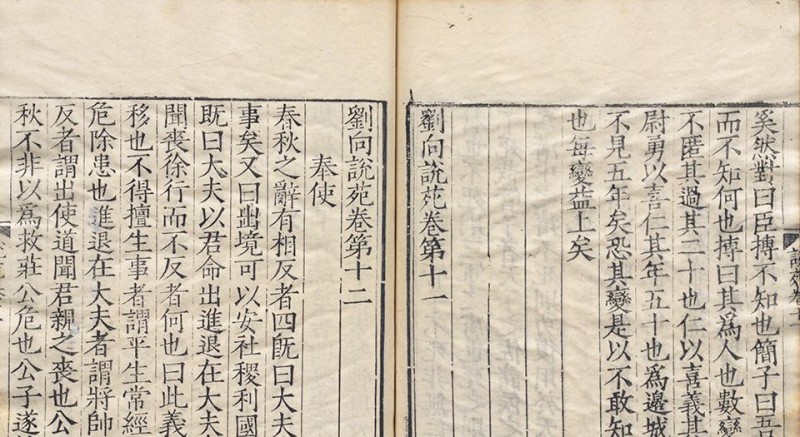 奚然對曰臣摶不知也簡子曰吾
而不知何也摶曰其爲人也數變
不匿其過其二十也仁以喜義其
尉勇以喜仁其年五十也爲邊城
不見五年矣恐其變是以不敢知
也每變益上矣
劉向說苑卷第十一
劉向說苑卷第十二
奉使
春秋之辭有相反者四旣曰大夫
事矣又曰出境可以安社稷利國
旣曰大夫以君命出進退在大夫
聞喪徐行而不反者何也曰此義
移也不得擅生事者謂平生常經
危除患也進退在大夫者謂將帥
反者謂出使道聞君親之喪也公
秋不非以爲救莊公危也公子遂